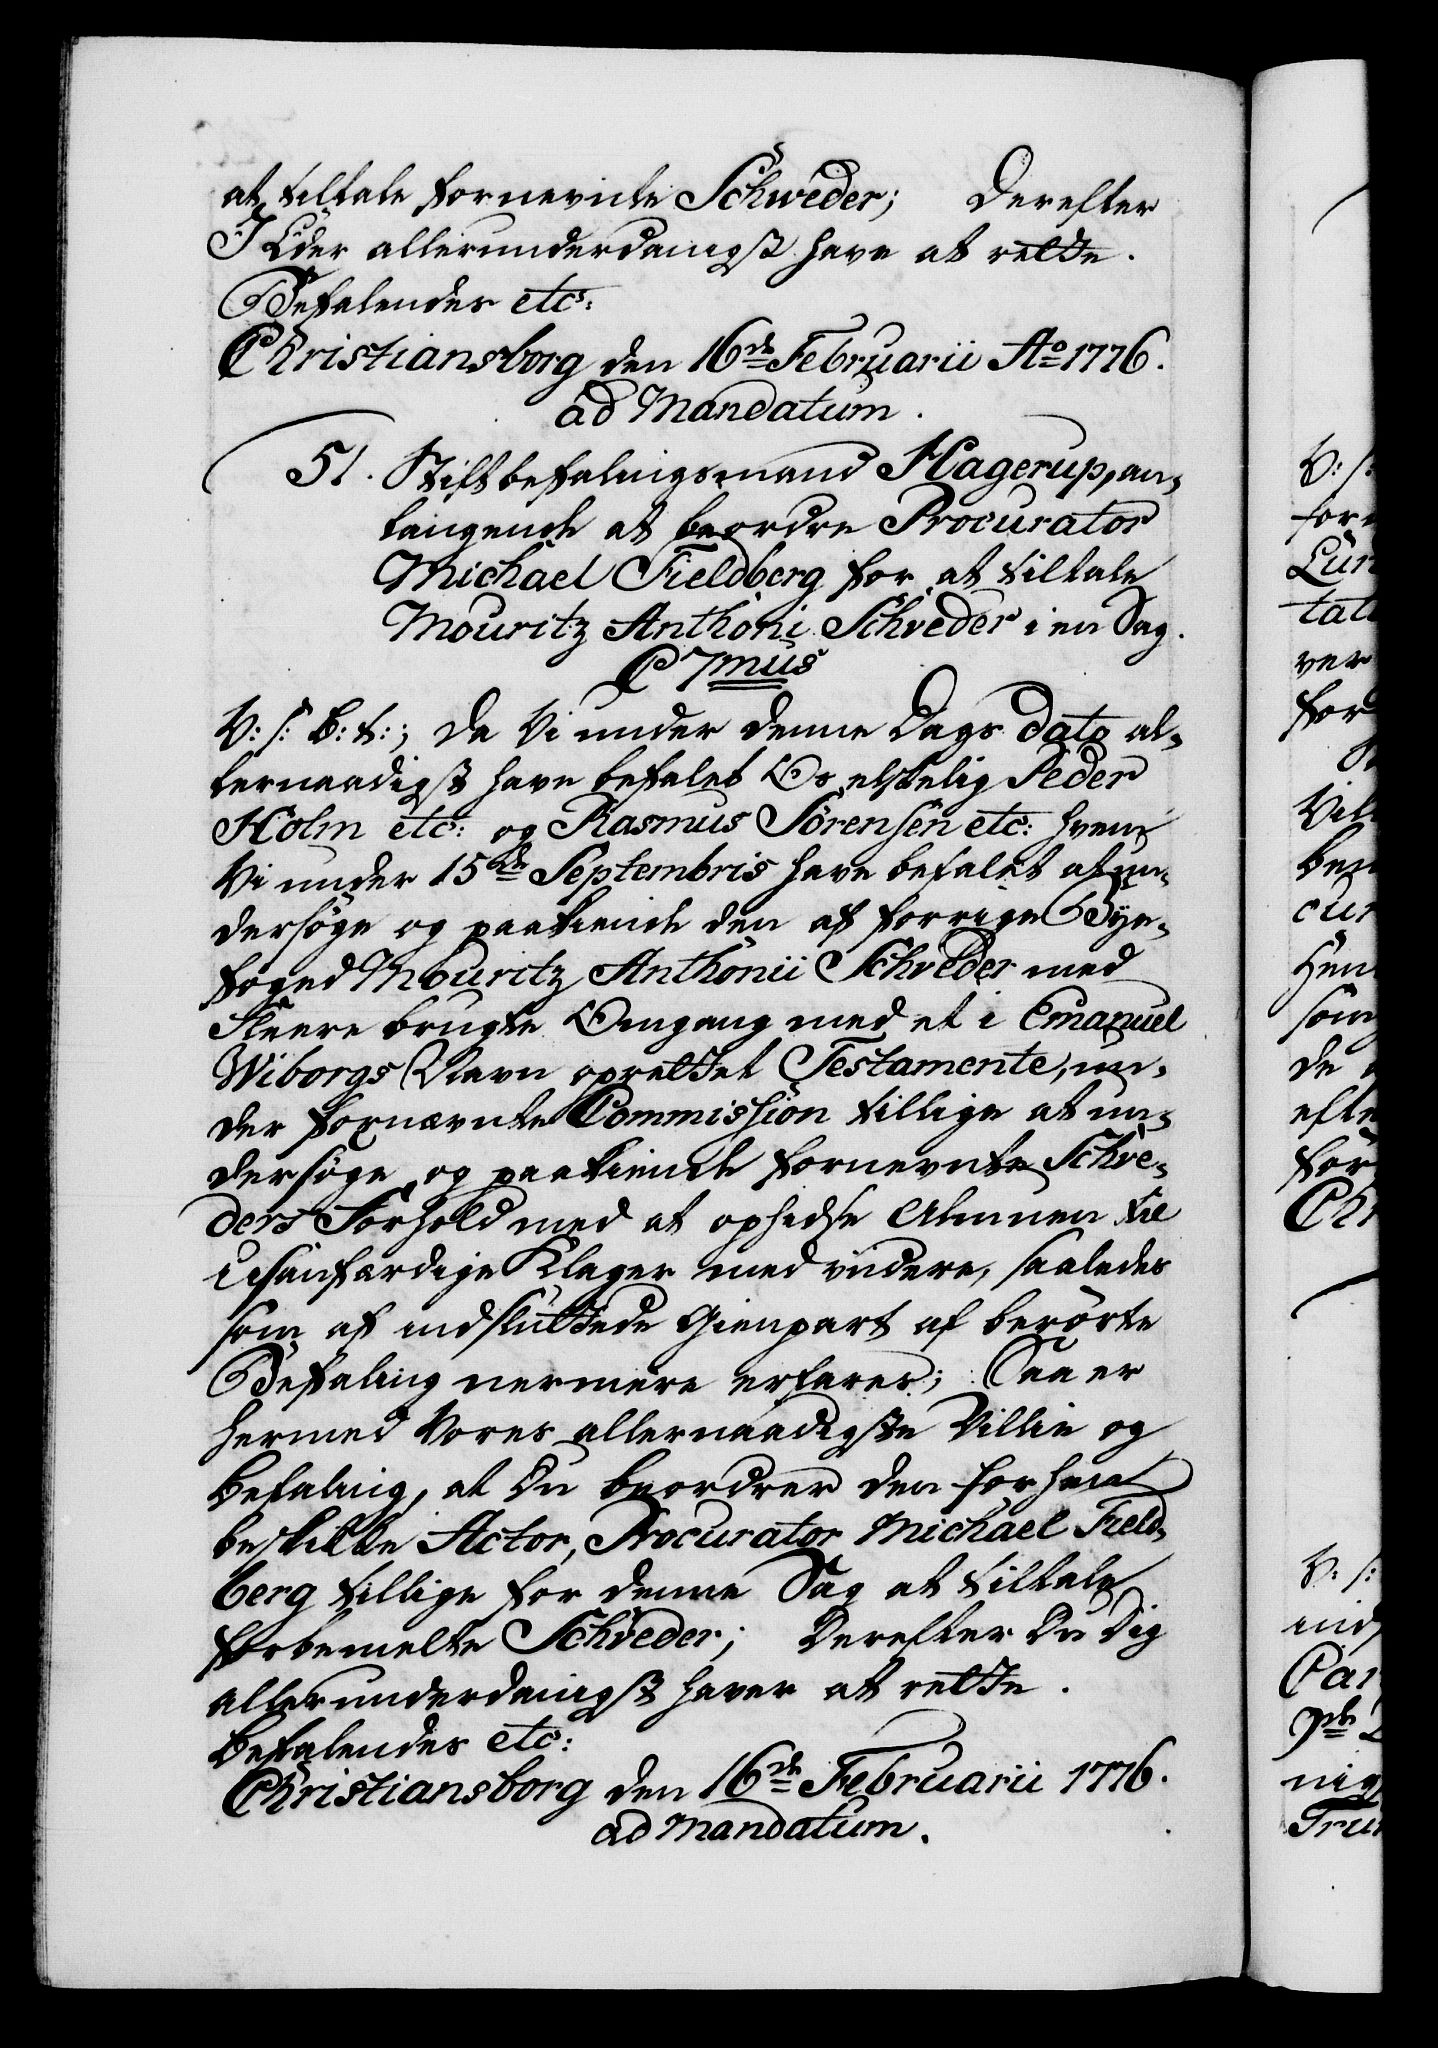 at tiltale fornevnte Schweder; Derefter
I Eder allerunderdanigst have at rette.
Befalendes etc:
Christiansborg den 16de Februarii Ao 1776.
ad Mandatum.
51. Stiftbefalingsmand Hagerup, an-
langende at beordre Procurator
Michael Fieldberg for at tiltale
Mouritz Anthoni Schrøder i en Sag.
C 7mus
V: s: B: t:; Da Vi under denne Dags Dato al-
lernaadigst have befalet Os elskelig Peder
Holm etc: og Rasmus Sørensen etc: hvem
Vi under 15de Septembris have befalet at un-
dersøge og paakiende den af forrige Bye-
foged Mouritz Anthonii Schrèder med
Fleere brugte Omgang med et i Emanuel
Wiborgs Navn oprettet Testamente, un-
der fornævnte Commission tillige at un-
dersøge og paakiende fornevnte Schrè-
ders Forhold med at ophidse Almuen til
usanfærdige Klager med videre, saaledes
som af indsluttede Gienpart af berørte
Befaling nermere erfares; Saa er
hermed Vores allernaadigste Villie og
Befaling, at Du beordrer den forhen
beskikkede Actor, Procurator Michael Field-
berg tillige for denne Sag at tiltale
forbemelte Schrèder; Derefter Du Dig
allerunderdanigst haver at rette.
Befalendes etc:
Christiansborg den 16de Februarii 1776.
ad Mandatum.